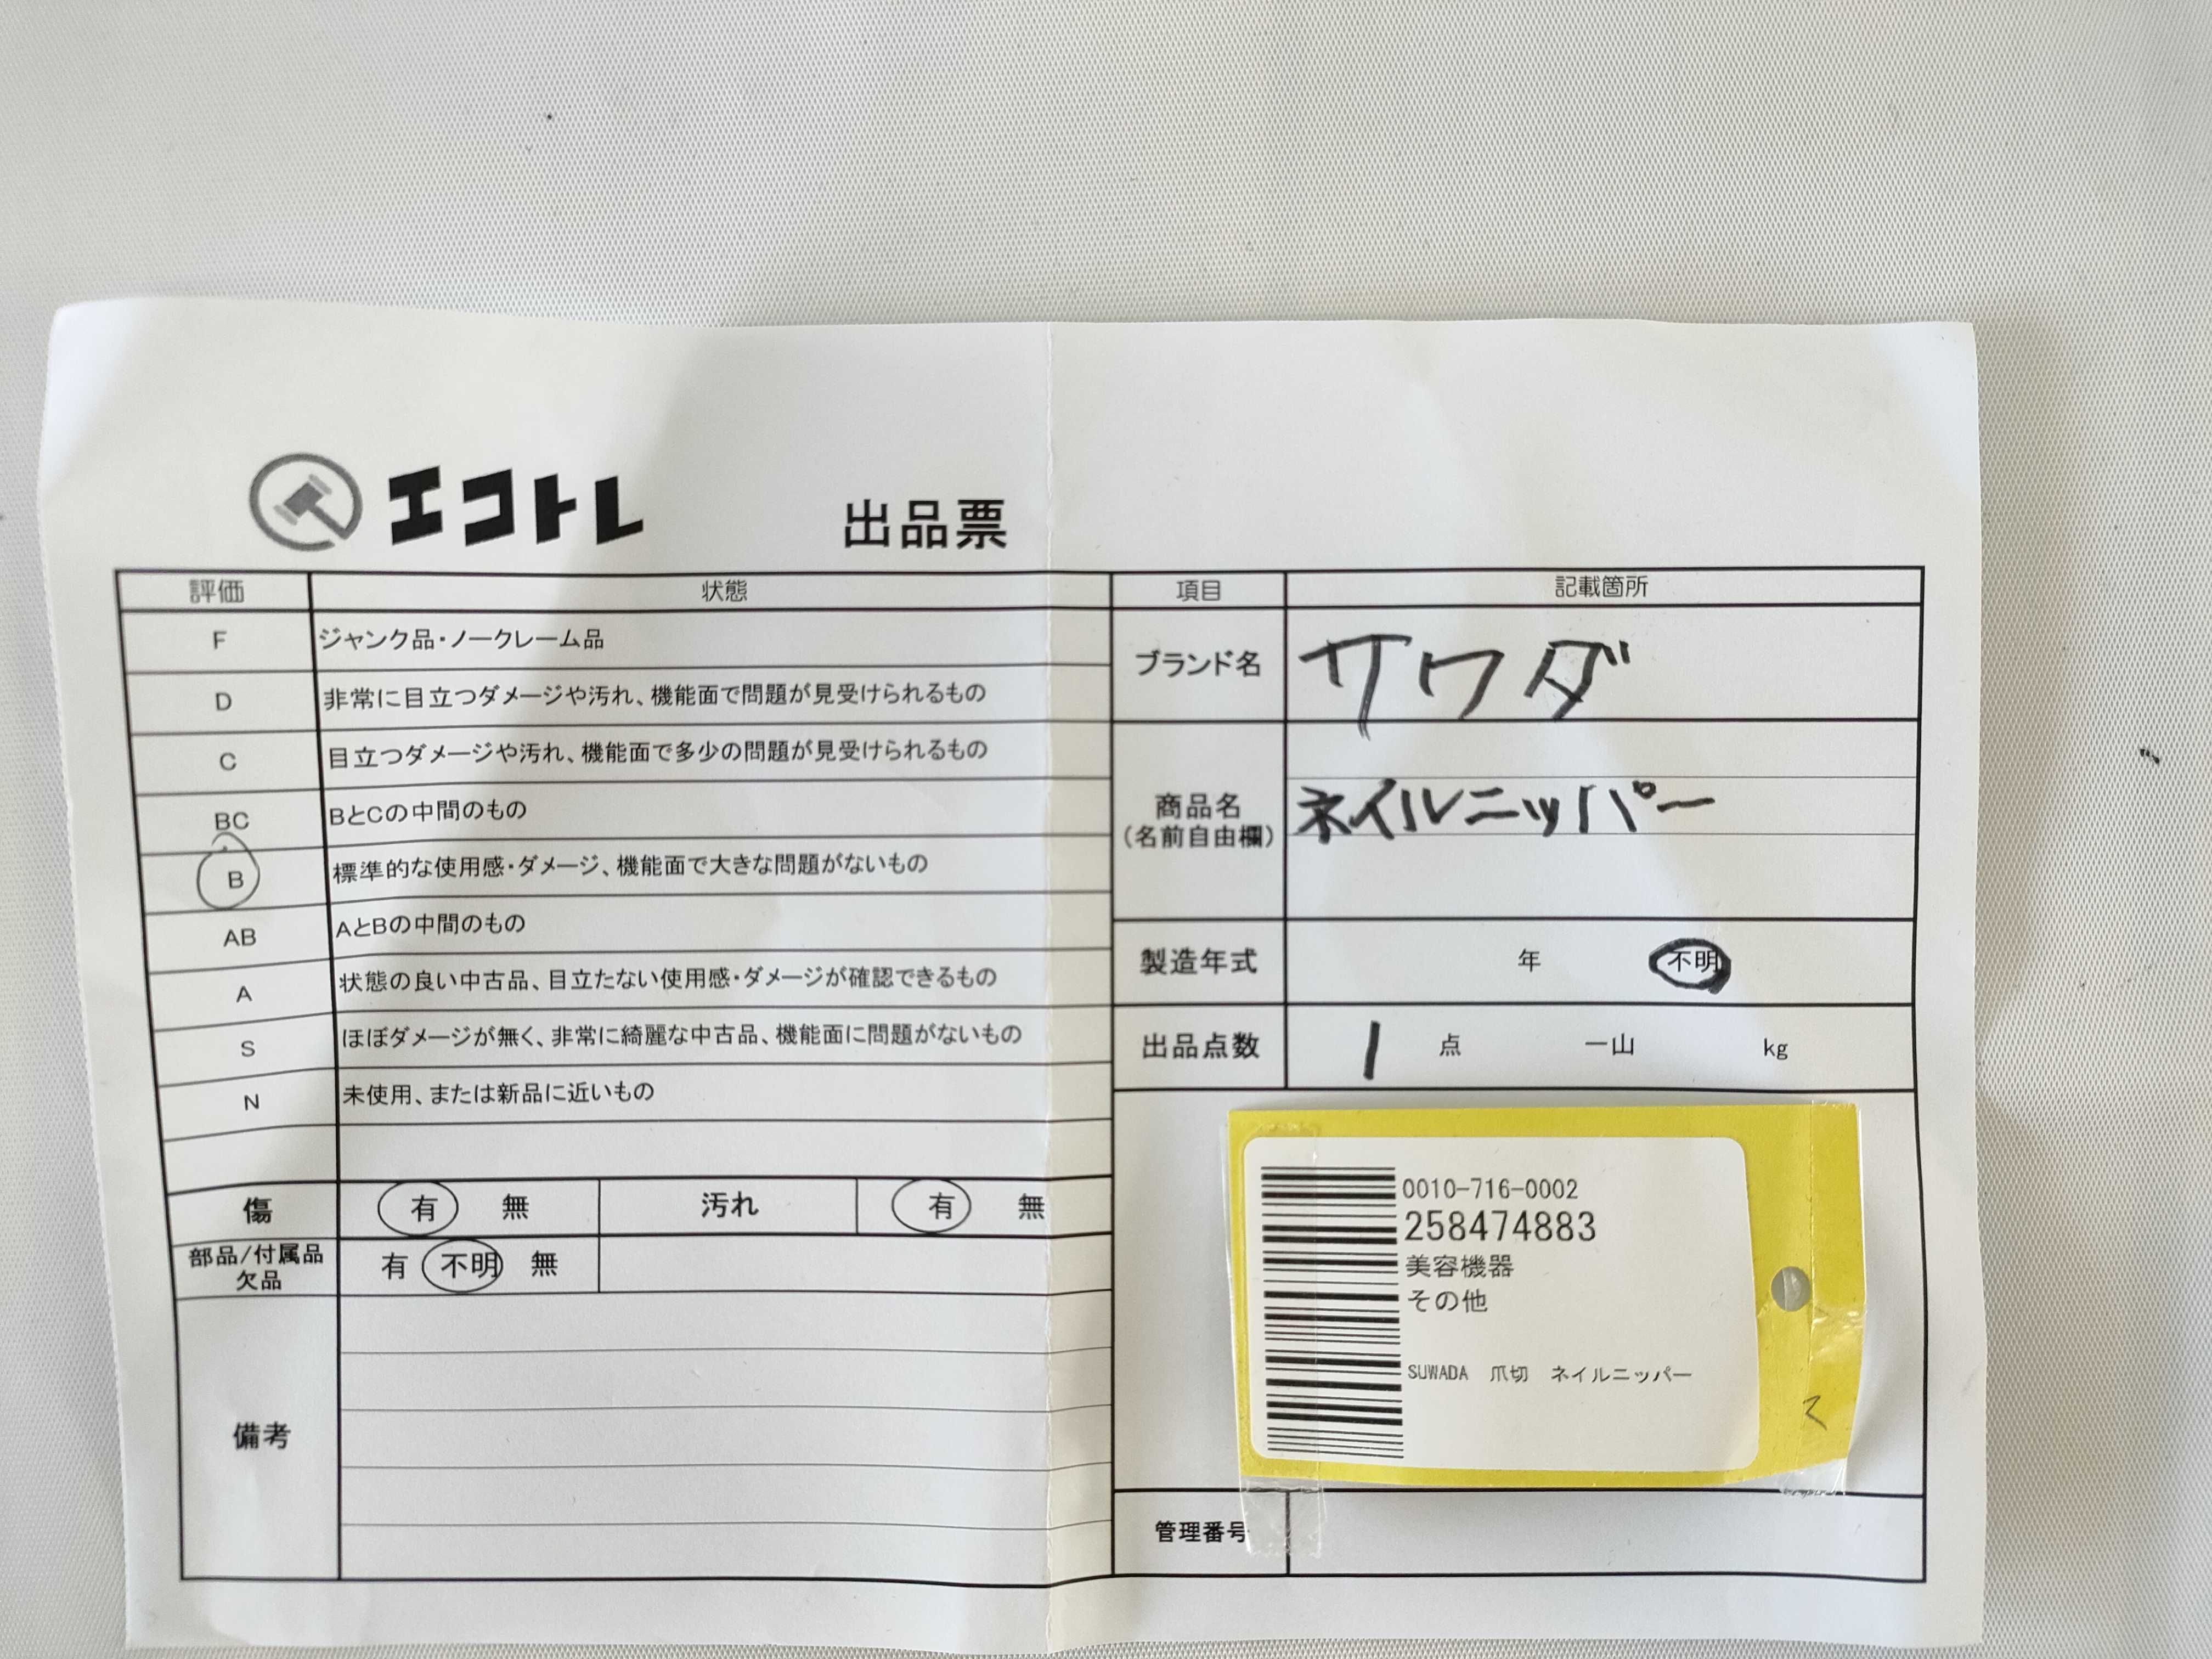 エコトレ 出品票
評価 状態
F ジャンク品・ノークレーム品
D 非常に目立つダメージや汚れ、機能面で問題が見受けられるもの
C 目立つダメージや汚れ、機能面で多少の問題が見受けられるもの
BC BとCの中間のもの
B 標準的な使用感・ダメージ、機能面で大きな問題がないもの
AB AとBの中間のもの
A 状態の良い中古品、目立たない使用感・ダメージが確認できるもの
S ほぼダメージが無く、非常に綺麗な中古品、機能面に問題がないもの
N 未使用、または新品に近いもの
傷 有 無 汚れ 有 無
部品/付属品
欠品 有 不明 無
備考
項目 記載箇所
ブランド名 サワダ
商品名
(名前自由欄) ネイルニッパー
製造年式 年 不明
出品点数 1 点 一山 kg
0010-716-0002
258474883
美容機器
その他
SUWADA 爪切 ネイルニッパー
管理番号